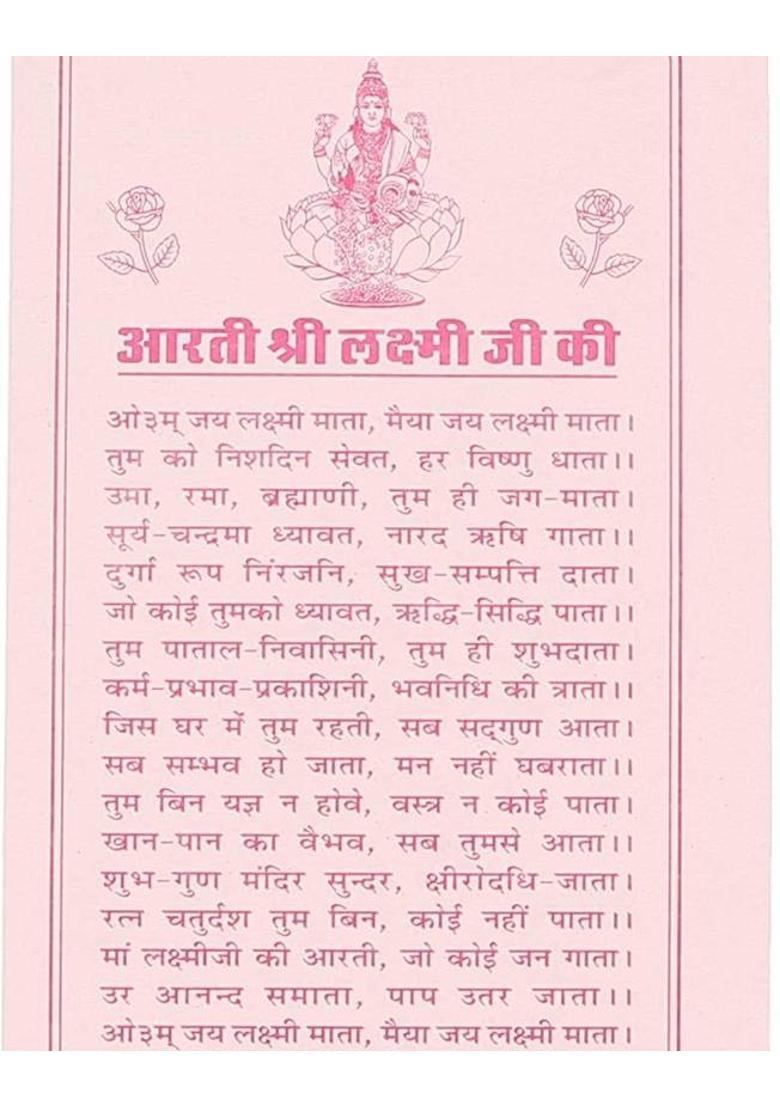 आरती श्री लक्ष्मी जी की
ओ३म् जय लक्ष्मी माता, मैया जय लक्ष्मी माता।
तुम को निशदिन सेवत, हर विष्णु धाता।।
उमा, रमा, ब्रह्माणी, तुम ही जग-माता।
सूर्य-चन्द्रमा ध्यावत, नारद ऋषि गाता।।
दुर्गा रूप निंरजनि, सुख-सम्पत्ति दाता।
जो कोई तुमको ध्यावत, ऋद्धि-सिद्धि पाता।।
तुम पाताल-निवासिनी, तुम ही शुभदाता।
कर्म-प्रभाव-प्रकाशिनी, भवनिधि की त्राता।।
जिस घर में तुम रहती, सब सद्‌गुण आता।
सब सम्भव हो जाता, मन नहीं घबराता।।
तुम बिन यज्ञ न होवे, वस्त्र न कोई पाता।
खान-पान का वैभव, सब तुमसे आता।।
शुभ-गुण मंदिर सुन्दर, क्षीरोदधि-जाता।
रत्न चतुर्दश तुम बिन, कोई नहीं पाता।।
मां लक्ष्मीजी की आरती, जो कोई जन गाता।
उर आनन्द समाता, पाप उतर जाता।।
ओ३म् जय लक्ष्मी माता, मैया जय लक्ष्मी माता।